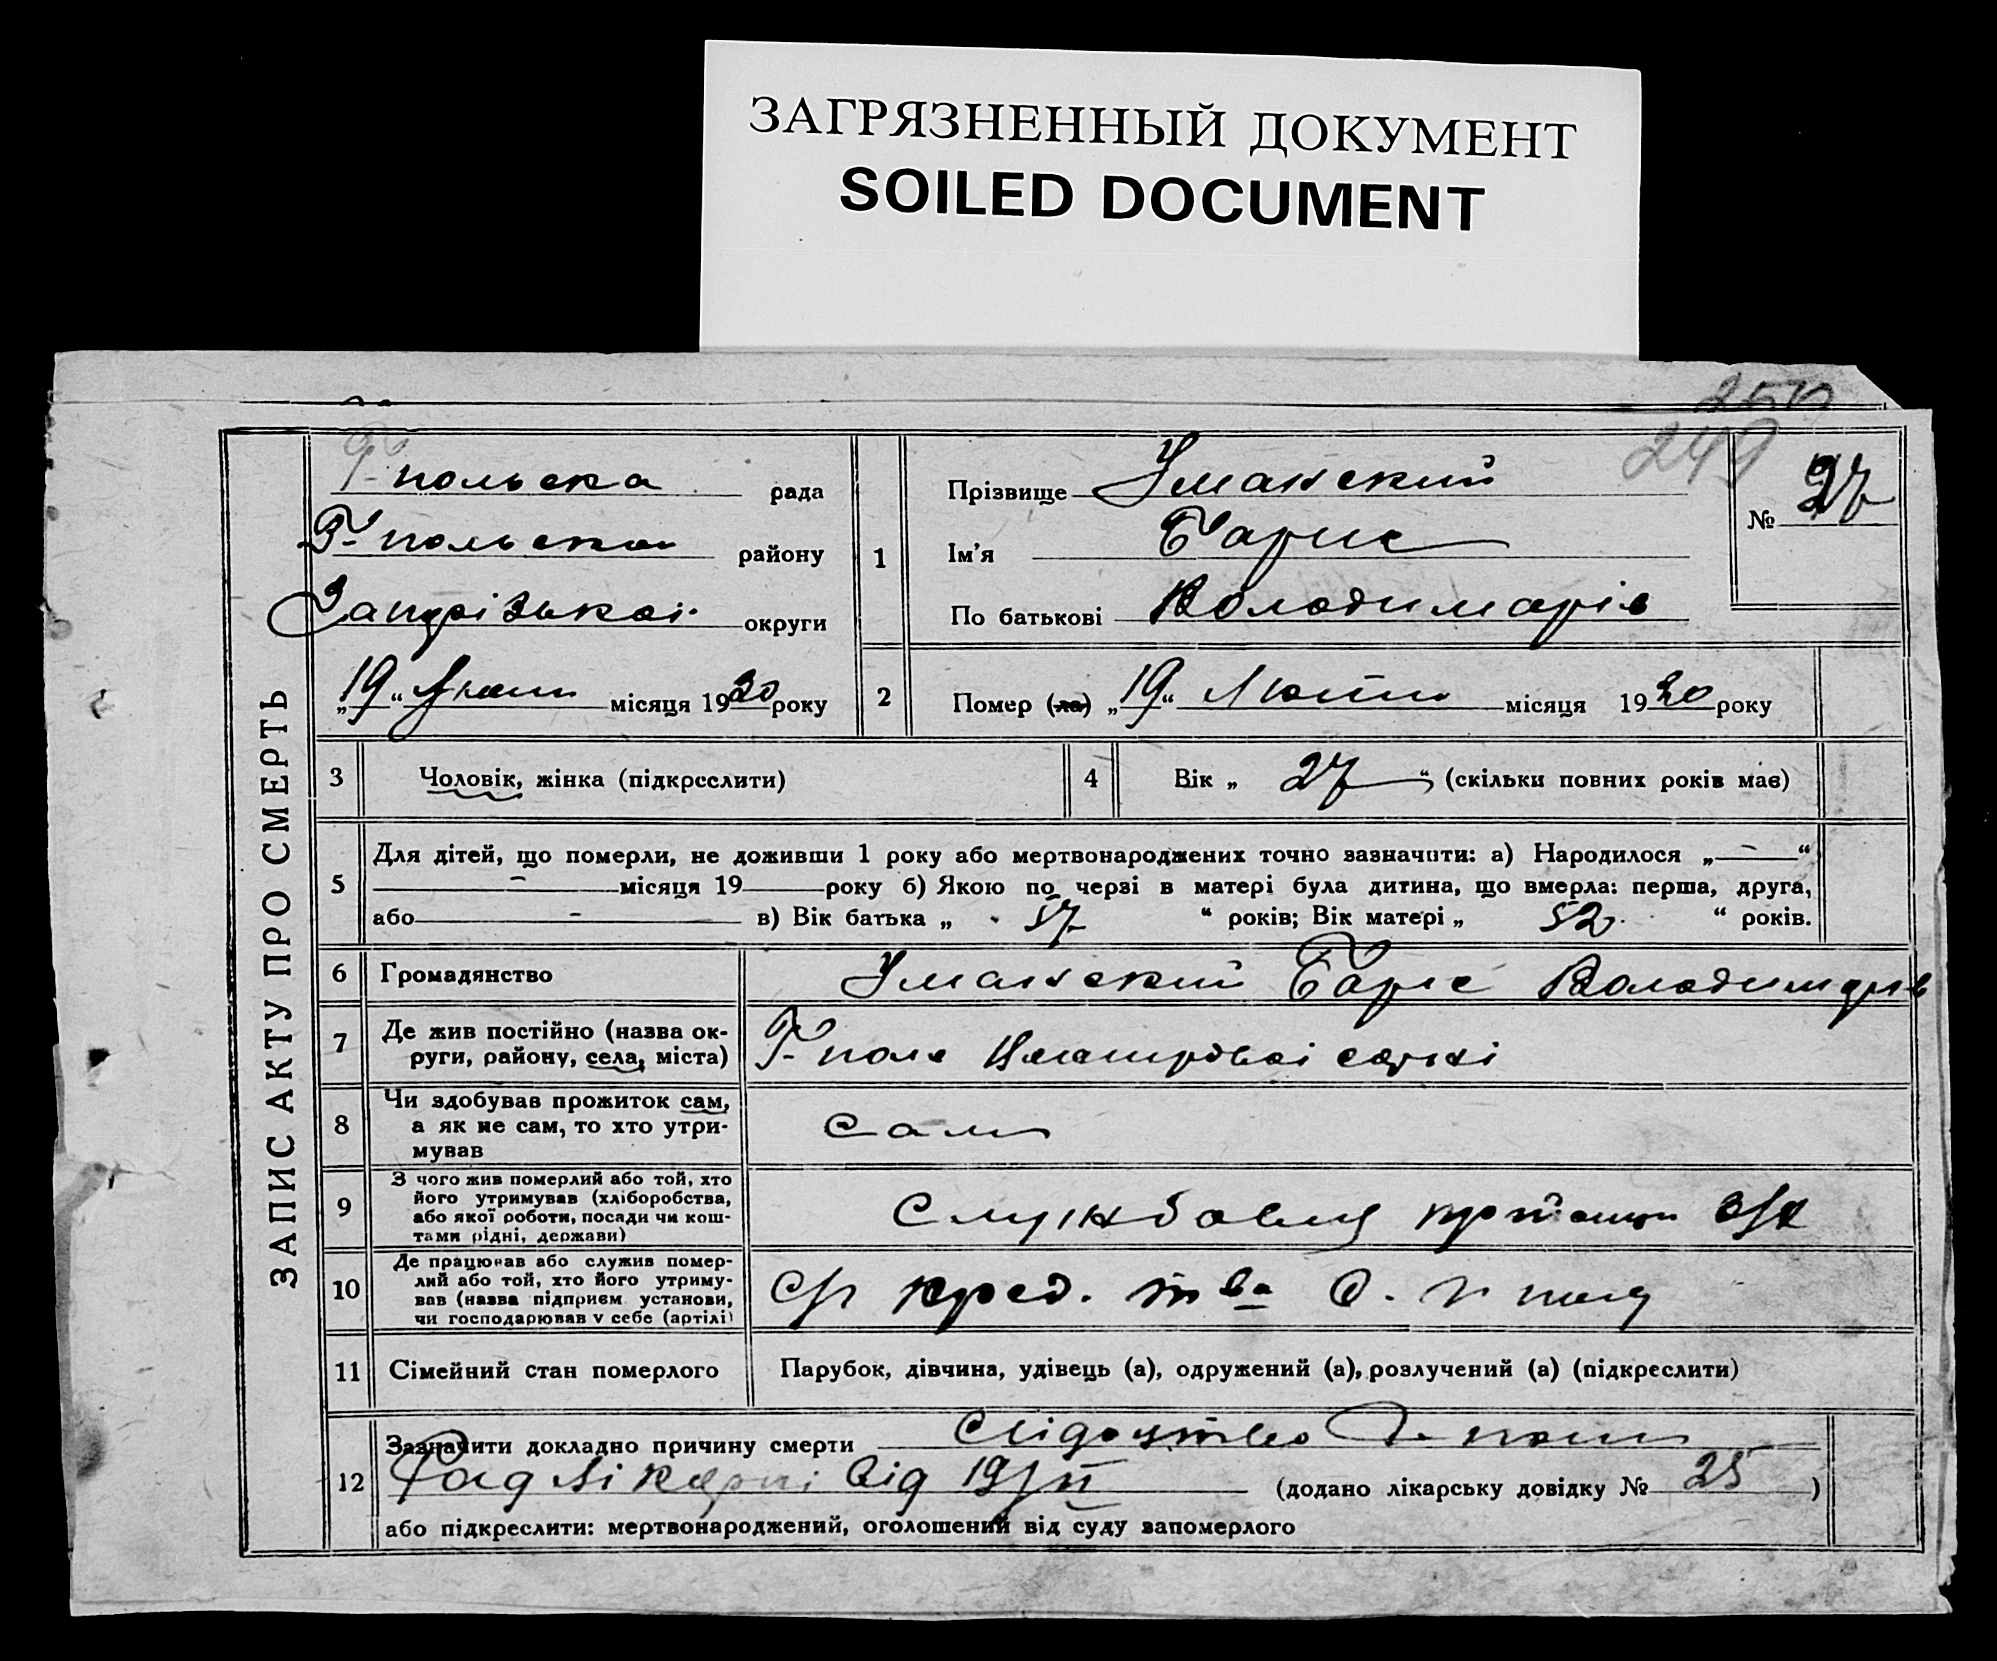 ЗАГРЯЗНЕННЫЙ ДОКУМЕНТ
SOILED DOCUMENT
249
ЗАПИС АКТУ ПРО СМЕРТЬ
Г-польска рада
Г-польско району
округи
„19“ місяця 1930 року
1
Прізвище Уманский
Ім’я Барис
По батькові Володимарів
№ 27
2 Помер (ла) „19“ Люты місяця 1930 року
3 Чоловік, жінка (підкреслити)
4 Вік „ 27 “ (скільки повних років має)
5 Для дітей, що померли, не доживши 1 року або мертвонароджених точно зазначити: а) Народилося „ - “
- місяця 19 року б) Якою по черзі в матері була дитина, що вмерла: перша, друга,
або - в) Вік батька „ 57 “ років; Вік матері „ 52 “ років.
6 Громадянство Уманский Барис Володимарів
7 Де жив постійно (назва ок-
руги, району, села, міста) Г-поле
8 Чи здобував прожиток сам,
а як не сам, то хто утри-
мував
Сам
9 З чого жив померлий або той, хто
його утримував (хліборобства,
або якої роботи, посади чи кош-
тами рідні, держави)
10 Де працював або служив помер-
лий або той, хто його утриму-
вав (назва підприєм. установи,
чи господарював у себе (артілі)
с/г кред. т-ва
11 Сімейний стан померлого Парубок, дівчина, удівець (а), одружений (а), розлучений (а) (підкреслити)
12 Зазначити докладно причину смерти
від 19/II (додано лікарську довідку № 25 )
або підкреслити: мертвонароджений, оголошений від суду запомерлого